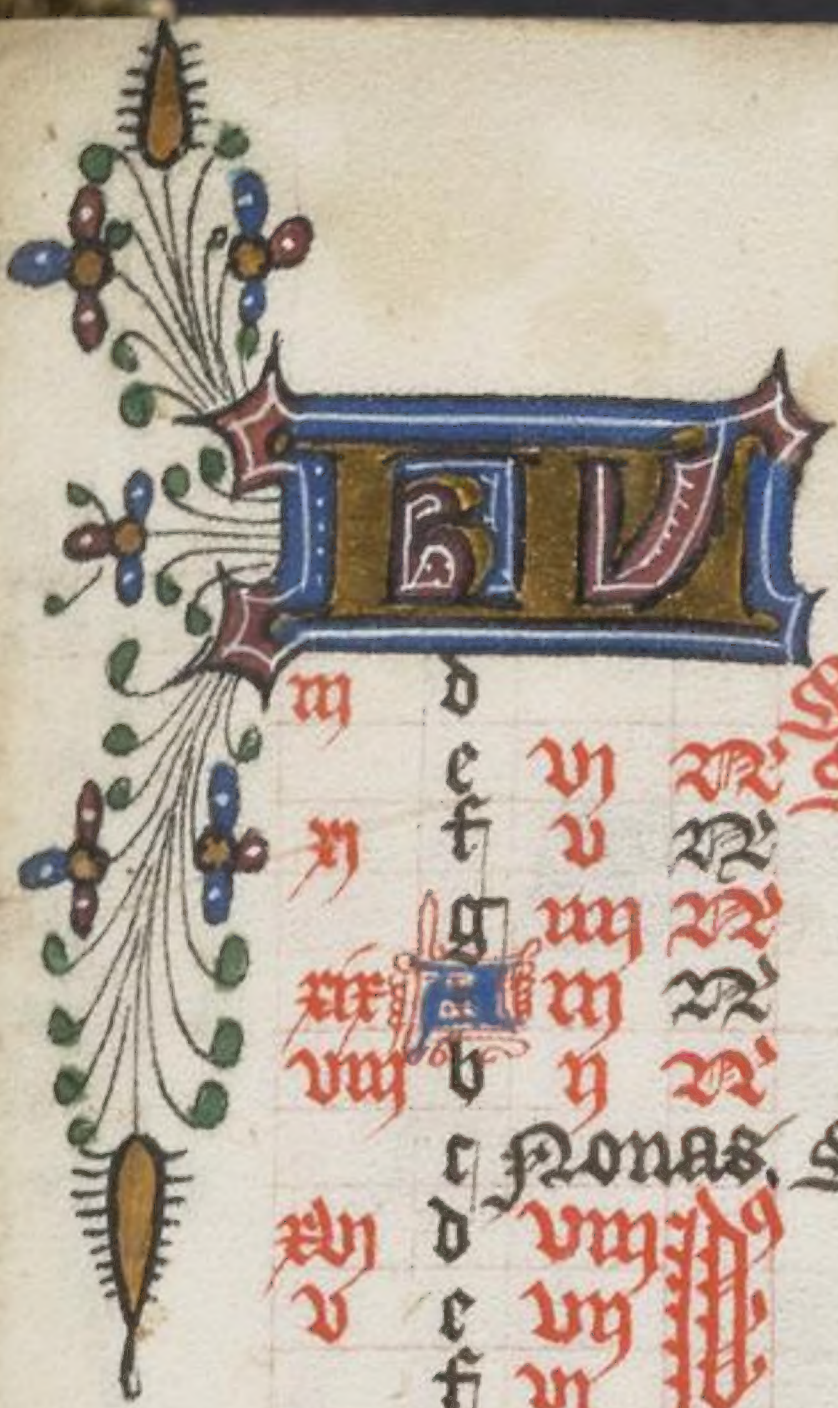 KL
iij d
e vj N
xj f v N
g iiij N
xix A iij N
viij b ij N
c Nonas.
xvj d viij Idꝰ
v e vij
f vj